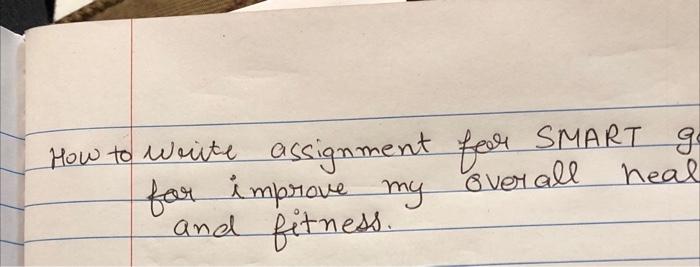 How to write assignment for SMART g
for improve my overall heal
and fitness.